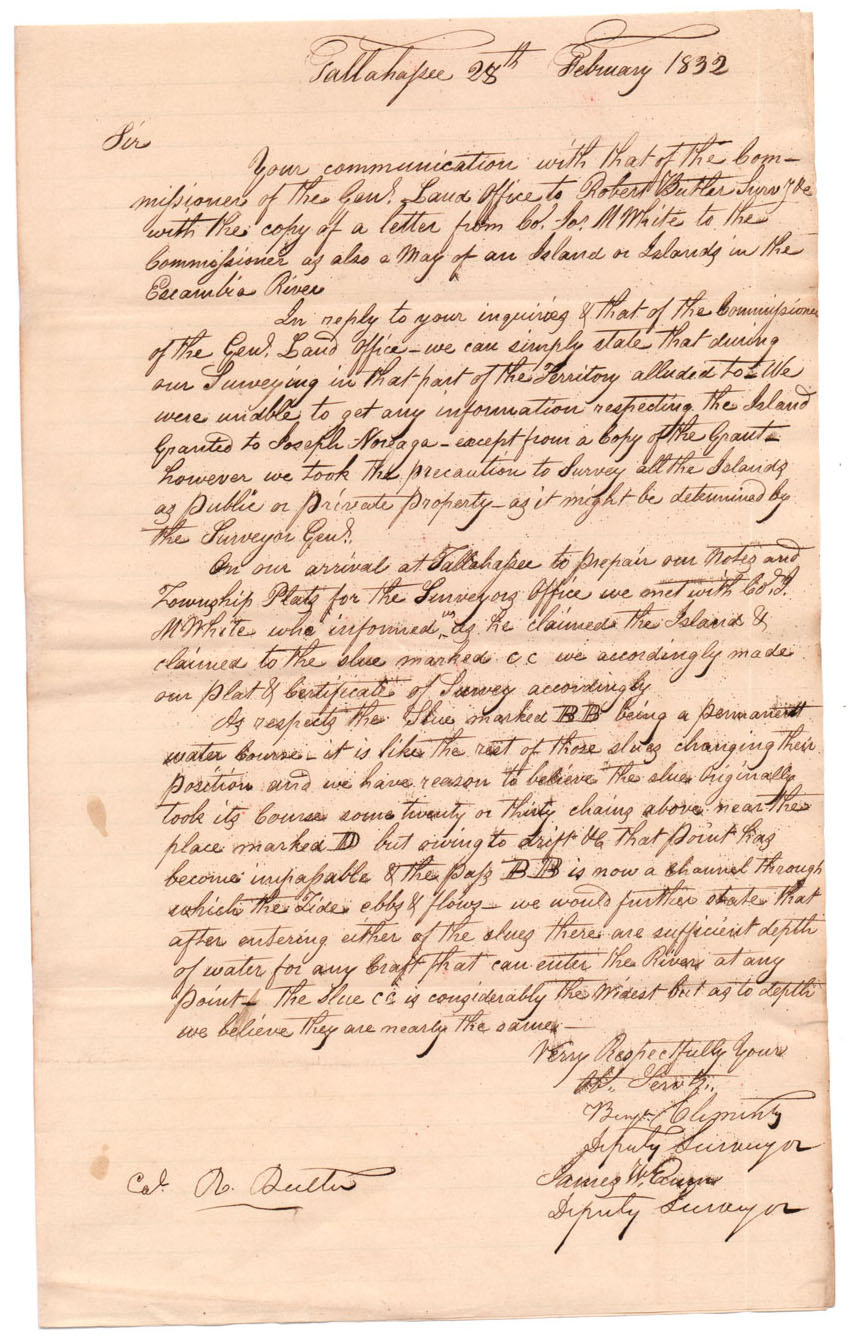 Tallahassee 28th February 1832
Sir
Your communication with that of the Com-
missioner of the Genl. Land Office to Robert Butler Survy &c
with the copy of a letter from Col. Jos. M White to the
Commissioner as also a Map of an Island or Islands in the
Escambia River
In reply to your inquiries & that of the Commissioner
of the Genl. Land Office - we can simply state that during
our Surveying in that part of the Territory alluded to - We
were unable to get any information respecting the Island
Granted to Joseph Noreaga - except from a Copy of the Grant -
however we took the precaution to Survey all the Islands
as Public or private Property - as it might be determined by
the Surveyor Genl.
On our arrival at Tallahassee to prepair our Notes and
Township Plats for the Surveyors Office we met with Col. J.
M White who informed us as he claimed the Island &
claimed to the slue marked CC we accordingly made
our plat & Certificate of Survey accordingly
As respects the Slue marked BB being a permanent
water Course - it is like the rest of those slues changing their
position and we have reason to believe the slue Originally
took its Course some twenty or thirty chains above near the
place marked D but owing to drift &c that Point has
become impassable & the pass BB is now a channel through
which the Tide ebbs & flows - we would further state that
after entering either of the slues there are sufficient depth
of water for any Craft that can enter the River at any
Point - the slue CC is considerably the Widest but as to depth
we believe they are nearly the same -
Verry Respectfully Your
Ob. Servts.
Benjn. Clements
Deputy Surveyor
James W. Exum
Deputy Surveyor
Col. R. Butler